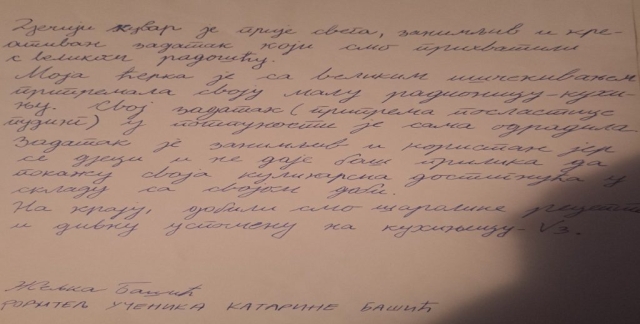 Дјечији кувар је прије свега, занимљив и кре-
ативан задатак који смо прихватили
с великом радошћу.
Моја ћерка је са великим ишчекивањем
припремала своју малу радионицу-кухи-
њу. Свој задатак (припрема посластице
пудинг) у потпуности је сама одрадила.
Задатак је занимљив и користан јер
се дјеци и не даје баш прилика да
покажу своја кулинарска достигнућа у
складу са својом доби.
На крају, добили смо шаролике рецепте
и дивну успомену на кухињицу - V3.
Жељка Башић
РОДИТЕЉ УЧЕНИКА КАТАРИНЕ БАШИЋ